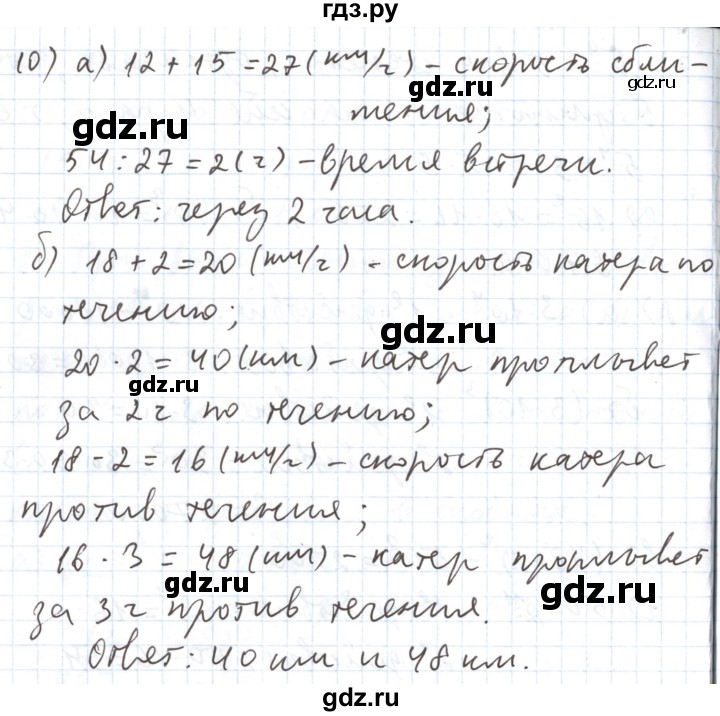 гдз.ру
10) а) 12 + 15 = 27 (км/ч) - скорость сбли-
жения;
54 : 27 = 2 (ч) - время встречи.
Ответ: через 2 часа.
б) 18 + 2 = 20 (км/ч) - скорость катера по
течению;
20 · 2 = 40 (км) - катер проплывет
за 2 ч по течению;
18 - 2 = 16 (км/ч) - скорость катера
против течения;
16 · 3 = 48 (км) - катер проплывет
за 3 ч против течения.
Ответ: 40 км и 48 км.
gdz.ru
gdz.ru
gdz.ru
gdz.ru
gdz.ru
gdz.ru
gdz.ru
gdz.ru
gdz.ru
gdz.ru
gdz.ru